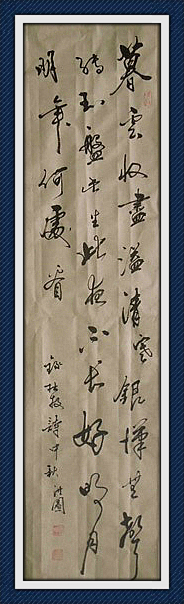 暮雲收盡溢清寒銀漢無聲
轉玉盤此生此夜不長好明月
明年何處看
錄杜牧詩中秋